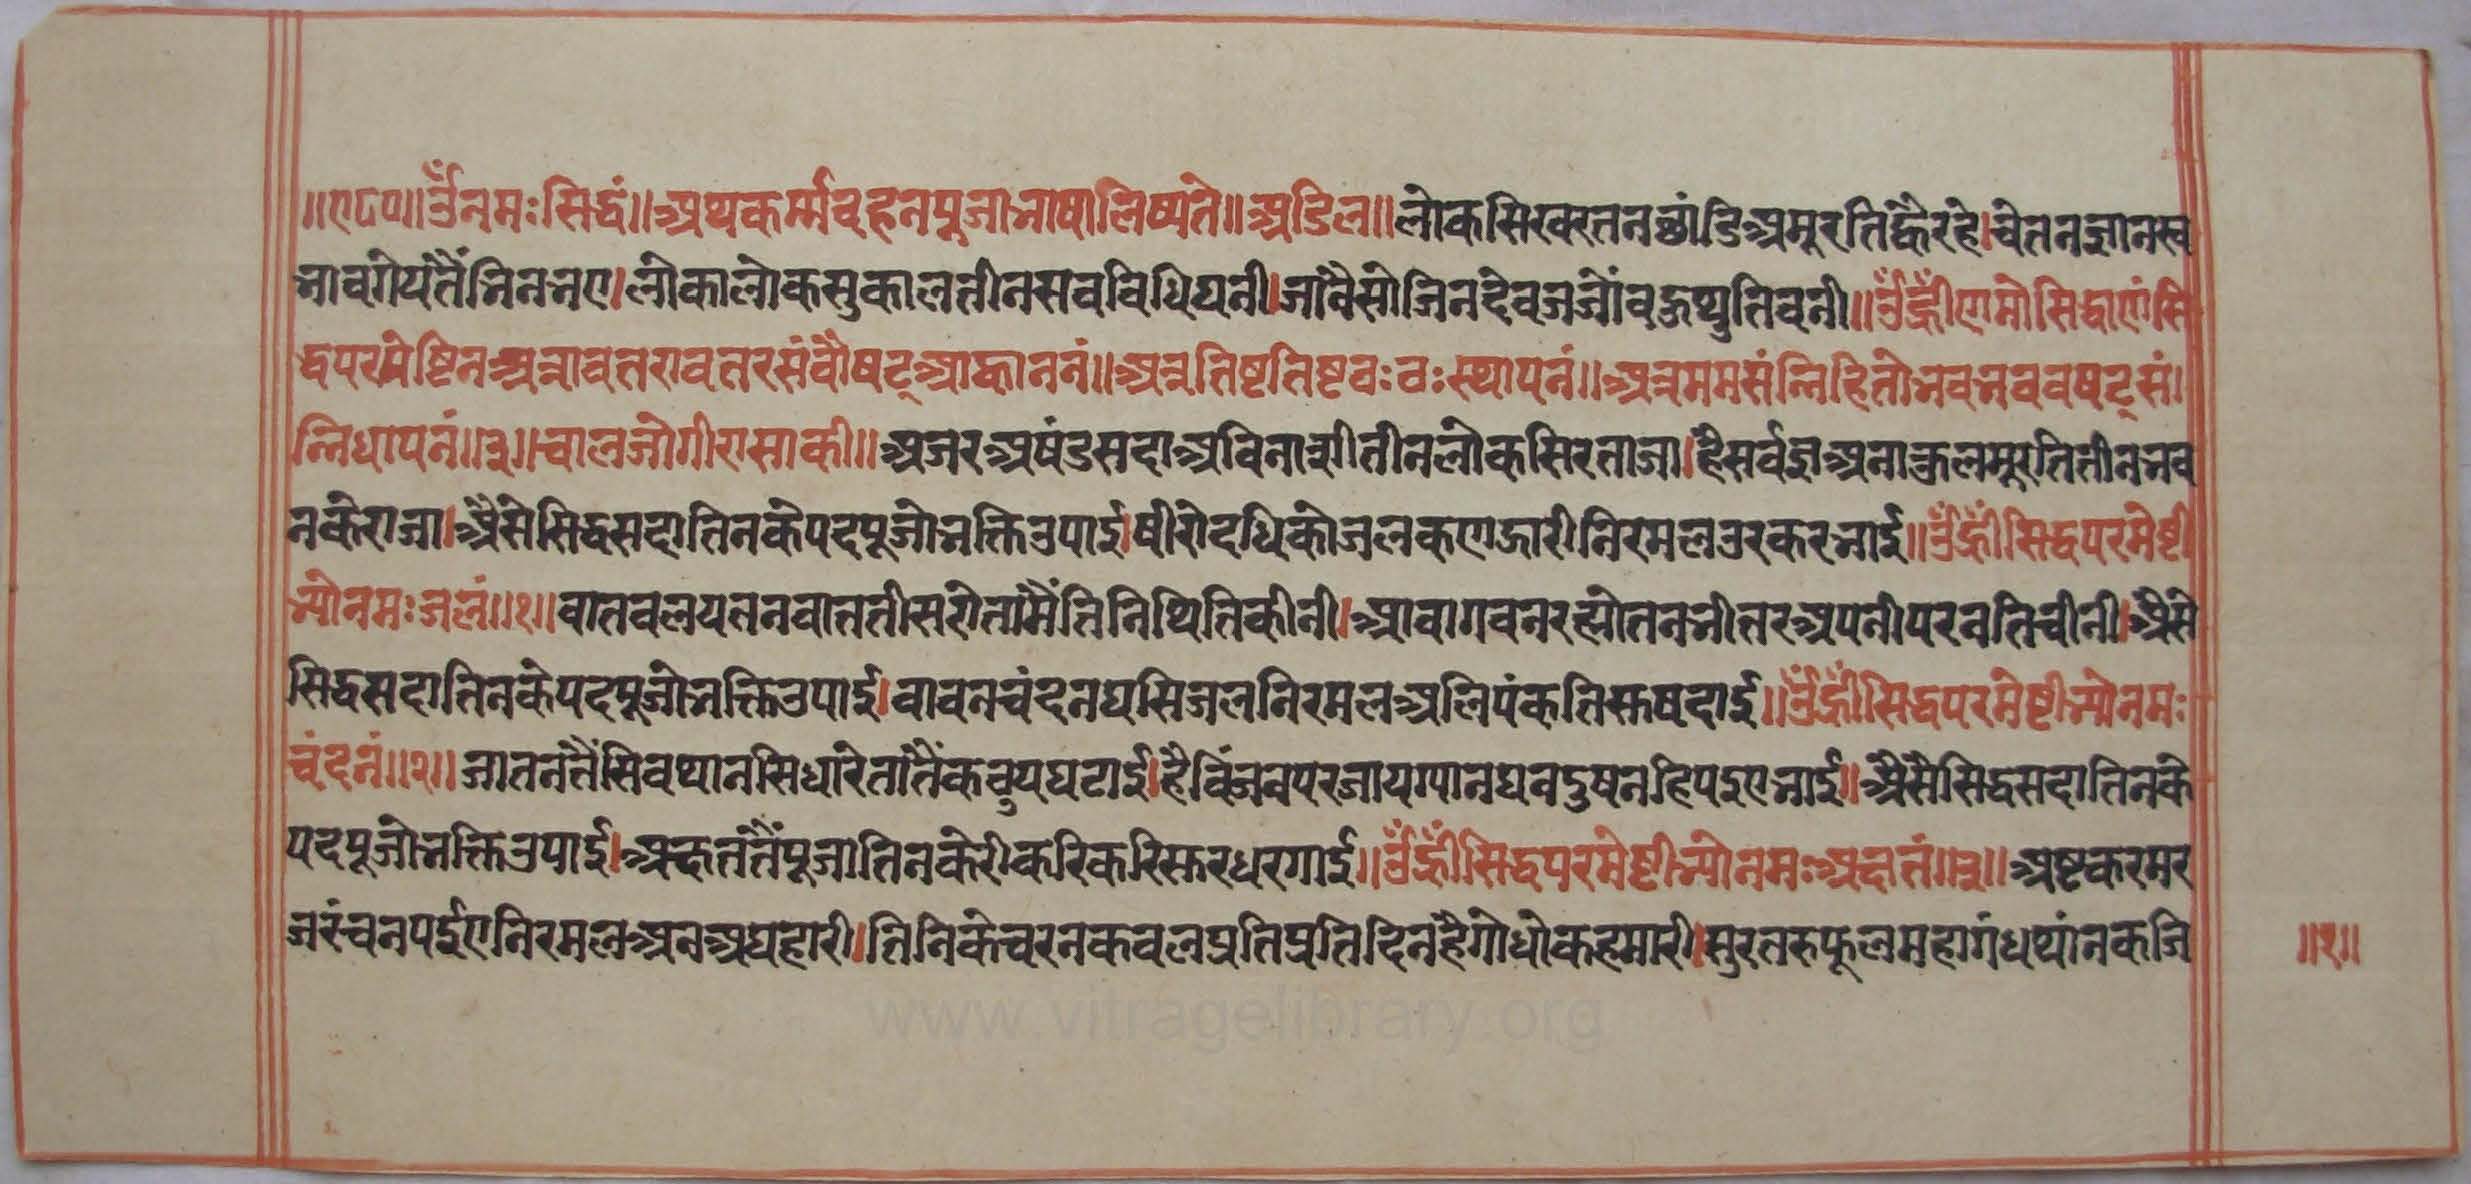 ॥ए८०॥ॐनमःसिद्धं॥अथकर्म्मदहनपूजाभाषालिष्यते॥अडिल॥लोकसिखरतनछांडिअमूरतिह्वैरहे।चेतनज्ञानस्व
भावगेयतैंभिनभए।लोकालोकसुकालतीनसवविधिघनी।जांनैसोजिनदेवजजोंवहुथुतिवनी॥ॐह्रींणमोसिद्धाणंसि
द्धपरमेष्टिनअत्रावतरावतरसंवौषट्आह्वाननं॥अत्रतिष्टतिष्टवःवःस्थापनं॥अत्रममसंन्निहितोभवभववषट्सं।
न्निधापनं॥३॥चालजोगीरासाकी॥अजरअषंडसदाअविनाशीतीनलोकसिरताजा।हैसर्वज्ञअनाकुलमूरतितीनभव
नकेराजा।अैसेसिद्धसदातिनकेपदपूजोभक्तिउपाई।षीरोदधिकोजलकणझारीनिरमलउरकरभाई॥ॐह्रींसिद्धपरमेष्टी
भ्योनमःजलं॥१॥वातवलयतनवाततीसरोतामैंतिनिथितिकीनी।आवागवनरत्योतनभीतरअपनीपरनतिचीनी।अैसे
सिद्धसदातिनकेपदपूजोभक्तिउपाई।वावनचंदनघसिजलनिरमलअलिपंकतिसुषदाई॥ॐह्रींसिद्धपरमेष्टीभ्योनमः
चंदनं॥२॥जातनतैंसिवथानसिधारेतातैंकछुयघटाई।हैविंजनपरजायग्यानघनदुषनहिपइएभाई॥अैसैसिद्धसदातिनके
पदपूजोभक्तिउपाई।अक्षततैंपूजातिनकेरीकरिकरिसुरधरगाई॥ॐह्रींसिद्धपरमेष्टीभ्योनमःअक्षतं॥३॥अष्टकरमर
जरंचनपईएनिरमलअनअघहारी।तिनिकेचरनकवलप्रतिप्रतिदिनहैगोधोकहमारी।सुरतरुफूलमहागंधथांनकजि
॥१॥
www.vitragelibrary.org